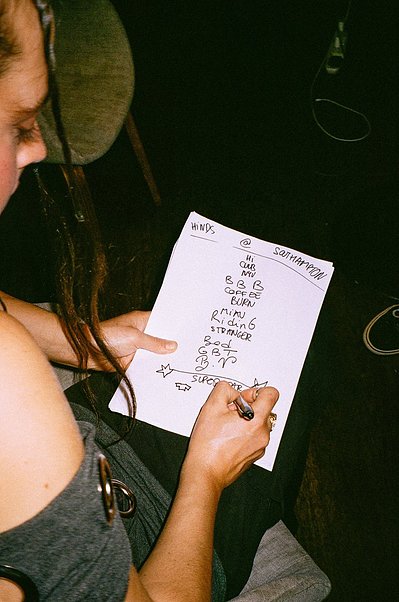 HINDS @ SOTHAMPTON
Hi
CLUB
MV
B B B
COFFEE
BURN
MIAU
RidinG
STRANGER
Bed
GBT
B.N
SUPER